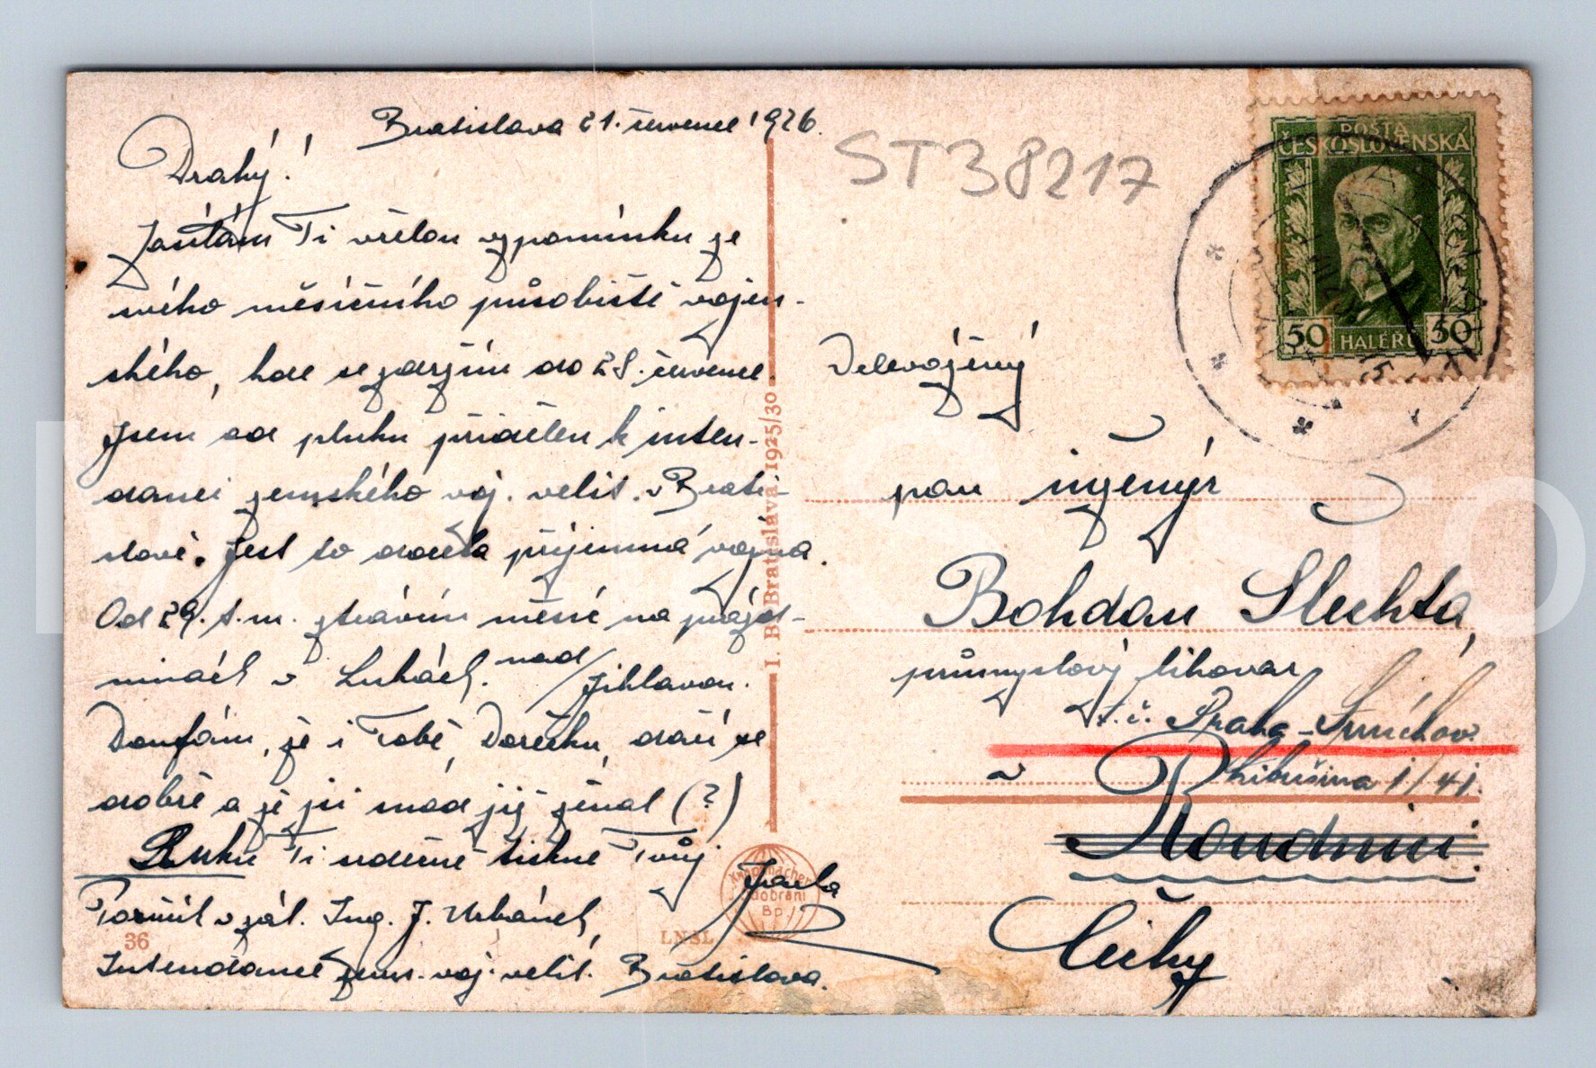 Bratislava 21. července 1926.
Drahý!
Zasílám Ti vřelou vzpomínku ze
svého měsíčního působiště vojen-
ského, kde se zdržím do 28. července.
Jsem od pluku přidělen k inten-
danci zemského voj. velit. v Brati-
slavě. Jest to docela příjemná vojna.
Od 29. t.m. ztrávím měsíc na prázd-
ninách v Lukách nad Jihlavou.
Doufám, že i Tobě, Dořečku, daří se
dobře a že jsi snad již ženat (?)
Ruku Ti srdečně tiskne Tvůj
Jarda
Poručík v zál. Ing. J. Urbánek,
Intendance zems. voj. velit. Bratislava.
36
LNSL
I. B. Bratislava 1925/30
ST38217
POŠTA
ČESKOSLOVENSKÁ
50 HALÉŘŮ 50
Velevážený
pan inženýr
Bohdan Šlechta,
průmyslový lihovar
t.č. Praha - Smíchov.
v Libušina 1/41.
Roudnici
Čechy